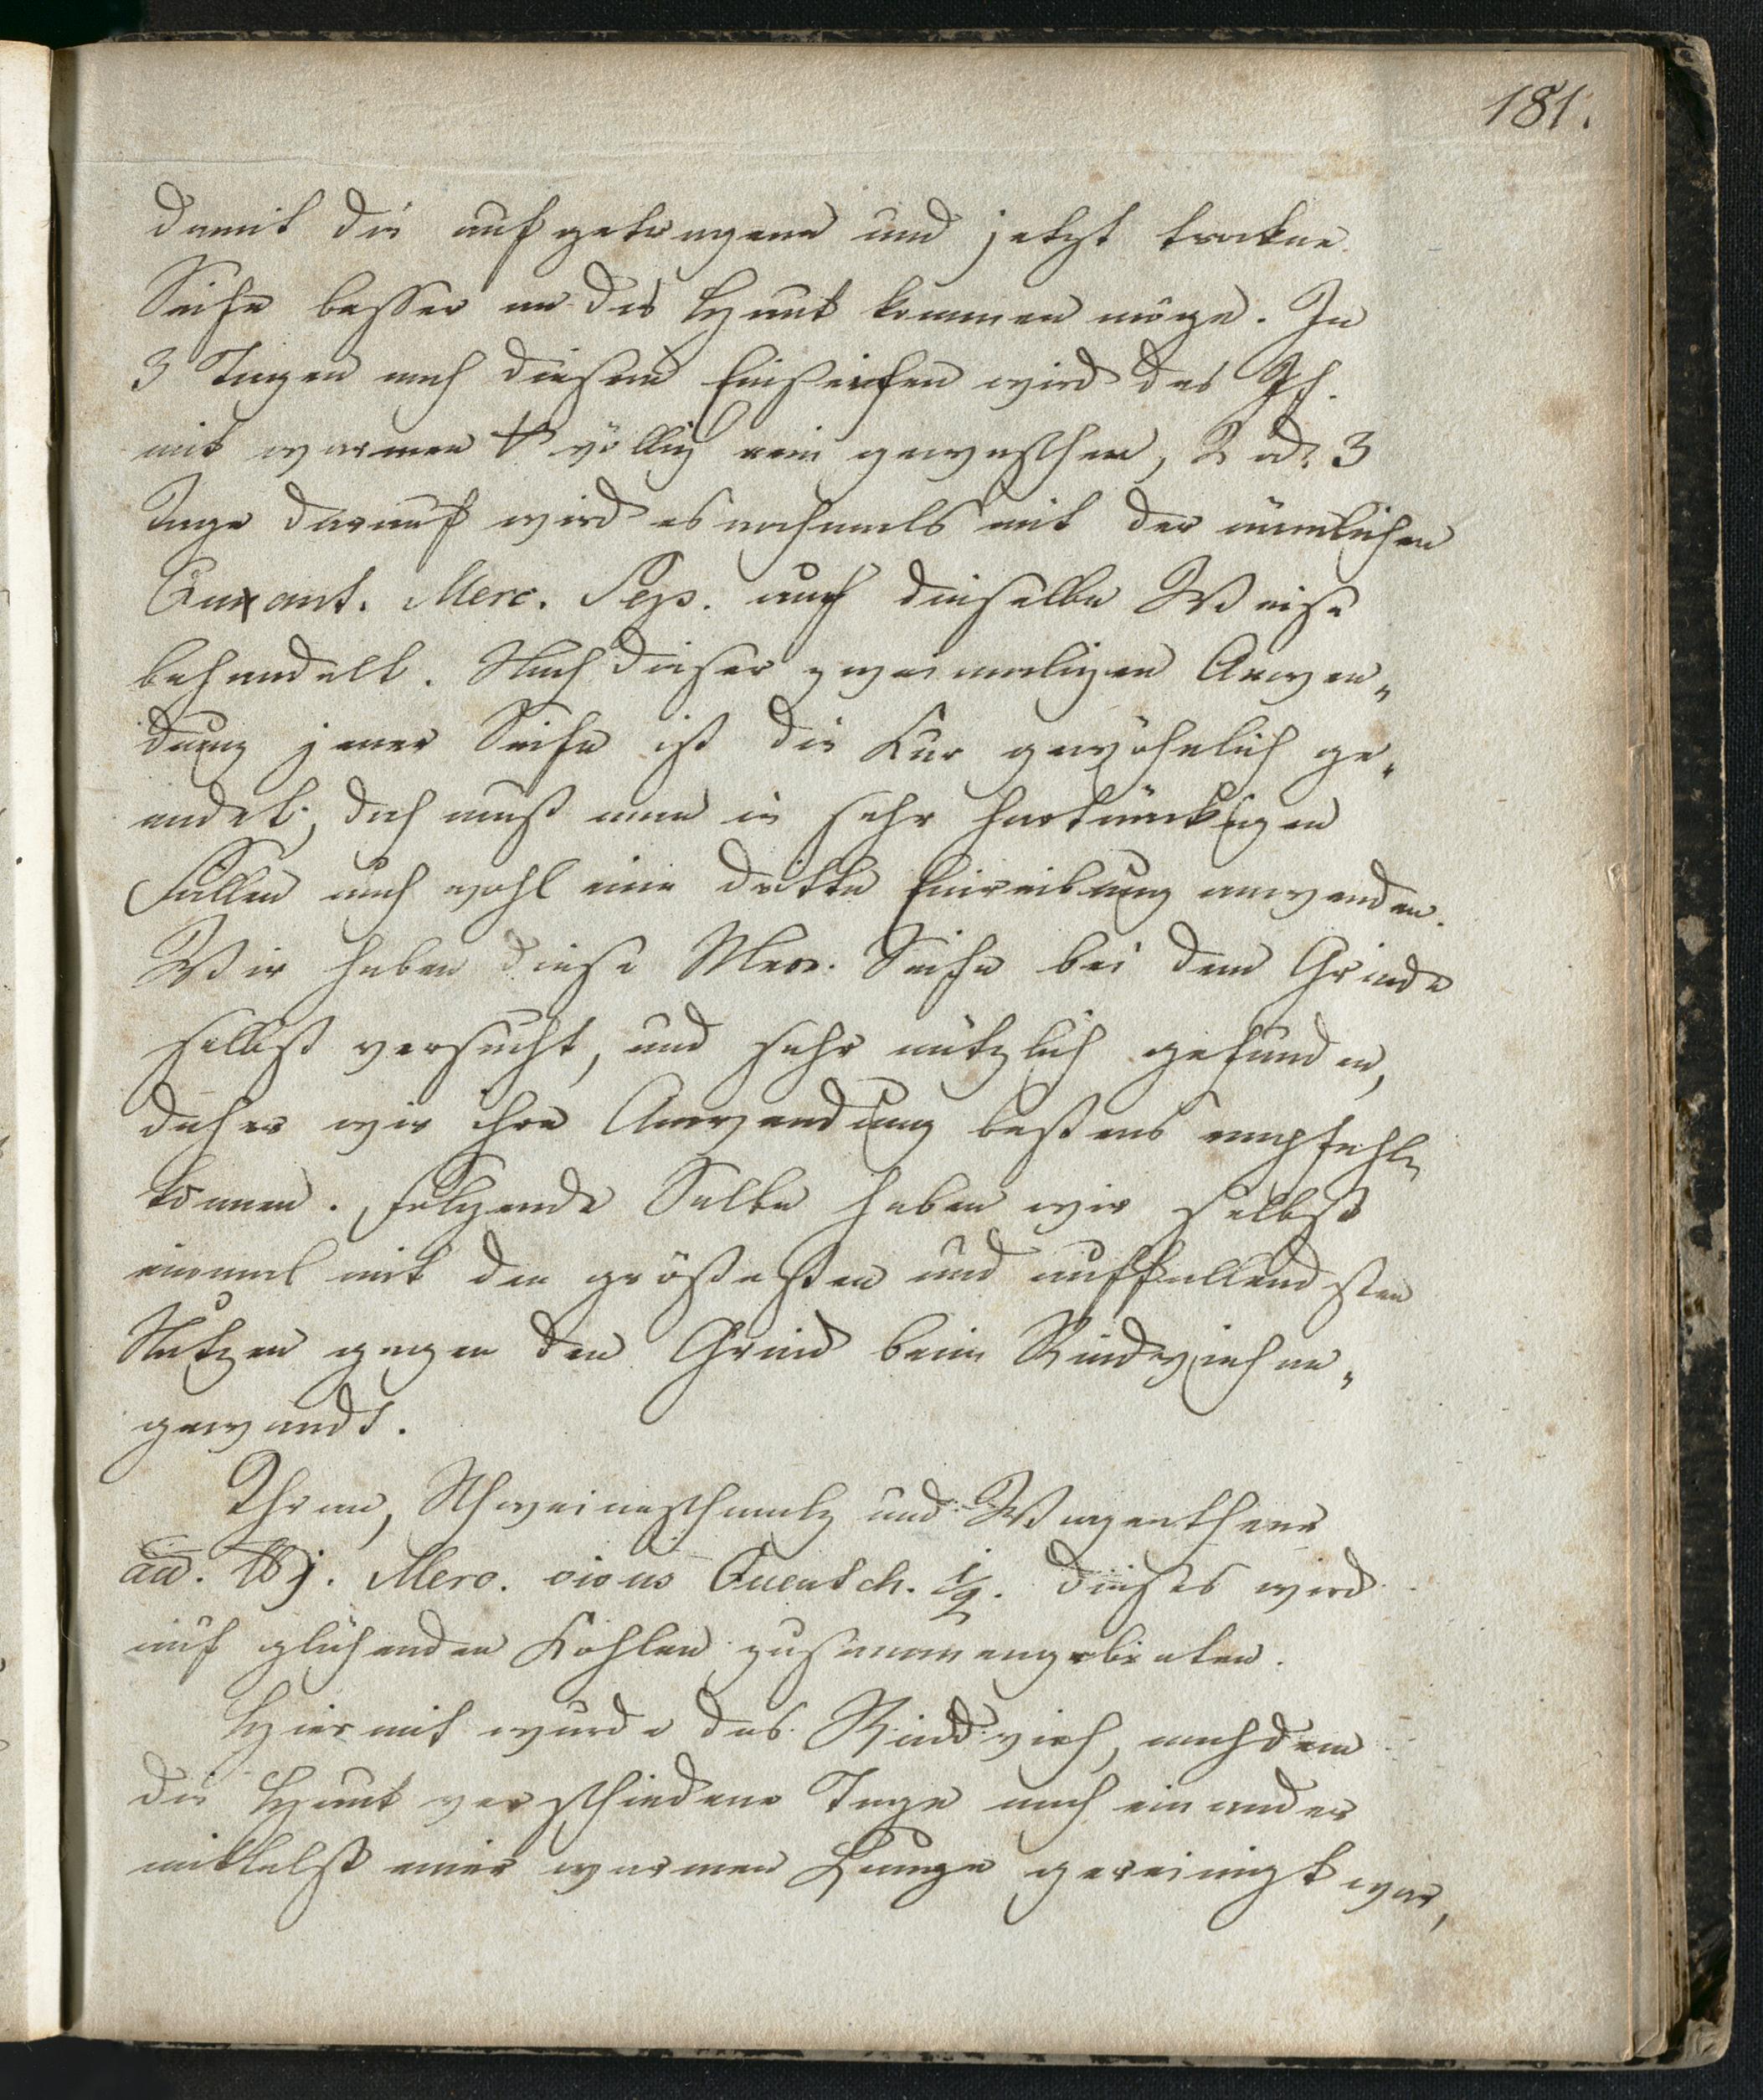 181.
damit die aufgetragene und jetzt trockne
Seife besser an die Haut kommen möge. In
3 Tagen nach diesem Einseifen wird das Pf.
mit warmen völlig rein gewaschen, 2 od. 3
Tage darauf wird es nochmals mit der nämlichen
Quant. Merc. Sep. auf dieselbe Weise
behandelt. Nach dieser zweimaligen Anwen„
dung jener Seife ist die Kur gewöhnlich ge„
endet, doch muß man in sehr hartnäckigen
Fällen auch wohl eine dritte Einreibung anwenden.
Wir haben diese Merc. Seife bei dem Grinde
selbst versucht, und sehr nützlich gefunden,
daher wir ihre Anwendung bestens empfehln
können. Folgende Salbe haben wir selbst
einmal mit den größesten und auffallendsten
Nutzen gegen den Grind beim Rindvieh an„
gewandt.
Thran, Schweineschmalz und Wagentheer
āā. ℔j. Merc. vivus Quentch. ½. dieses wird
auf glühenden Kohlen zusammengebraten.
Hiermit wurde das Rindvieh, nachdem
die Haut verschiedene Tage nach einander
mittelst einer warmen Lauge gereinigt war,